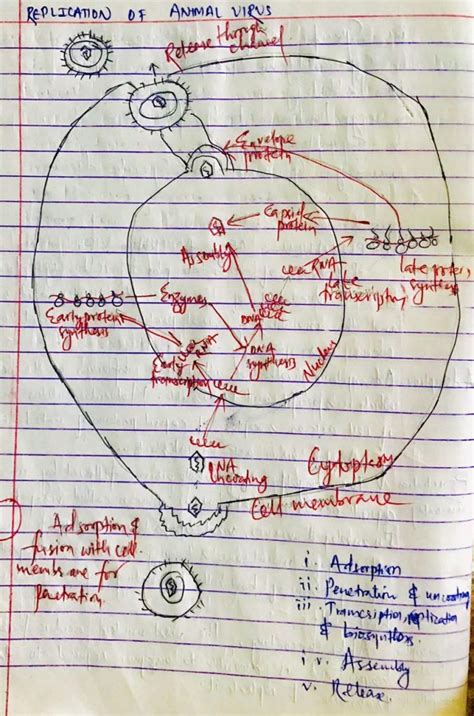 REPLICATION OF ANIMAL VIRUS
Release through
channel
Envelope
protein
Capsid
protein
Assembly
mRNA
late
transcription
late protein
synthesis
Enzymes
Early protein
synthesis
DNA
DNA
synthesis
Nucleus
RNA
Early
transcription
DNA
Uncoating
Cytoplasm
Cell membrane
Adsorption &
fusion with cell
membrane for
penetration
i. Adsorption
ii. Penetration & uncoating
iii. Transcription, replication
& biosynthesis.
iv. Assembly
v. Release.